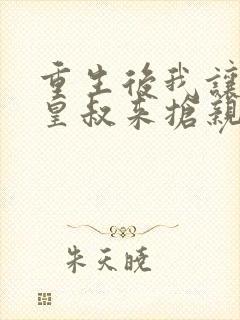 重生後我讓
皇叔来搶親
朱天曉